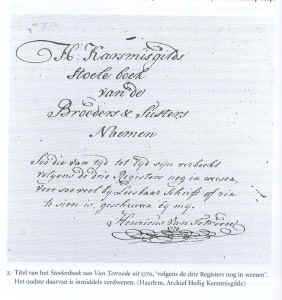 H. Karsmisgilds
Stoele boek
van de
Broeders & Susters
Naemen
Sie die van tijd tot tijd sijn verkocht
volgens de drie Registers nog in weesen,
Voor soo veel bij Leesbaar Schrift of
te sien is, geschreven bij my,
Henricus Van
2. Titel van het Stoelenboek van Van Torrede uit 1770, 'volgens de drie Registers nog in wesen'.
Het oudste daarvan is inmiddels verdwenen. (Haarlem, Archief Heilig Kerstmisgilde)